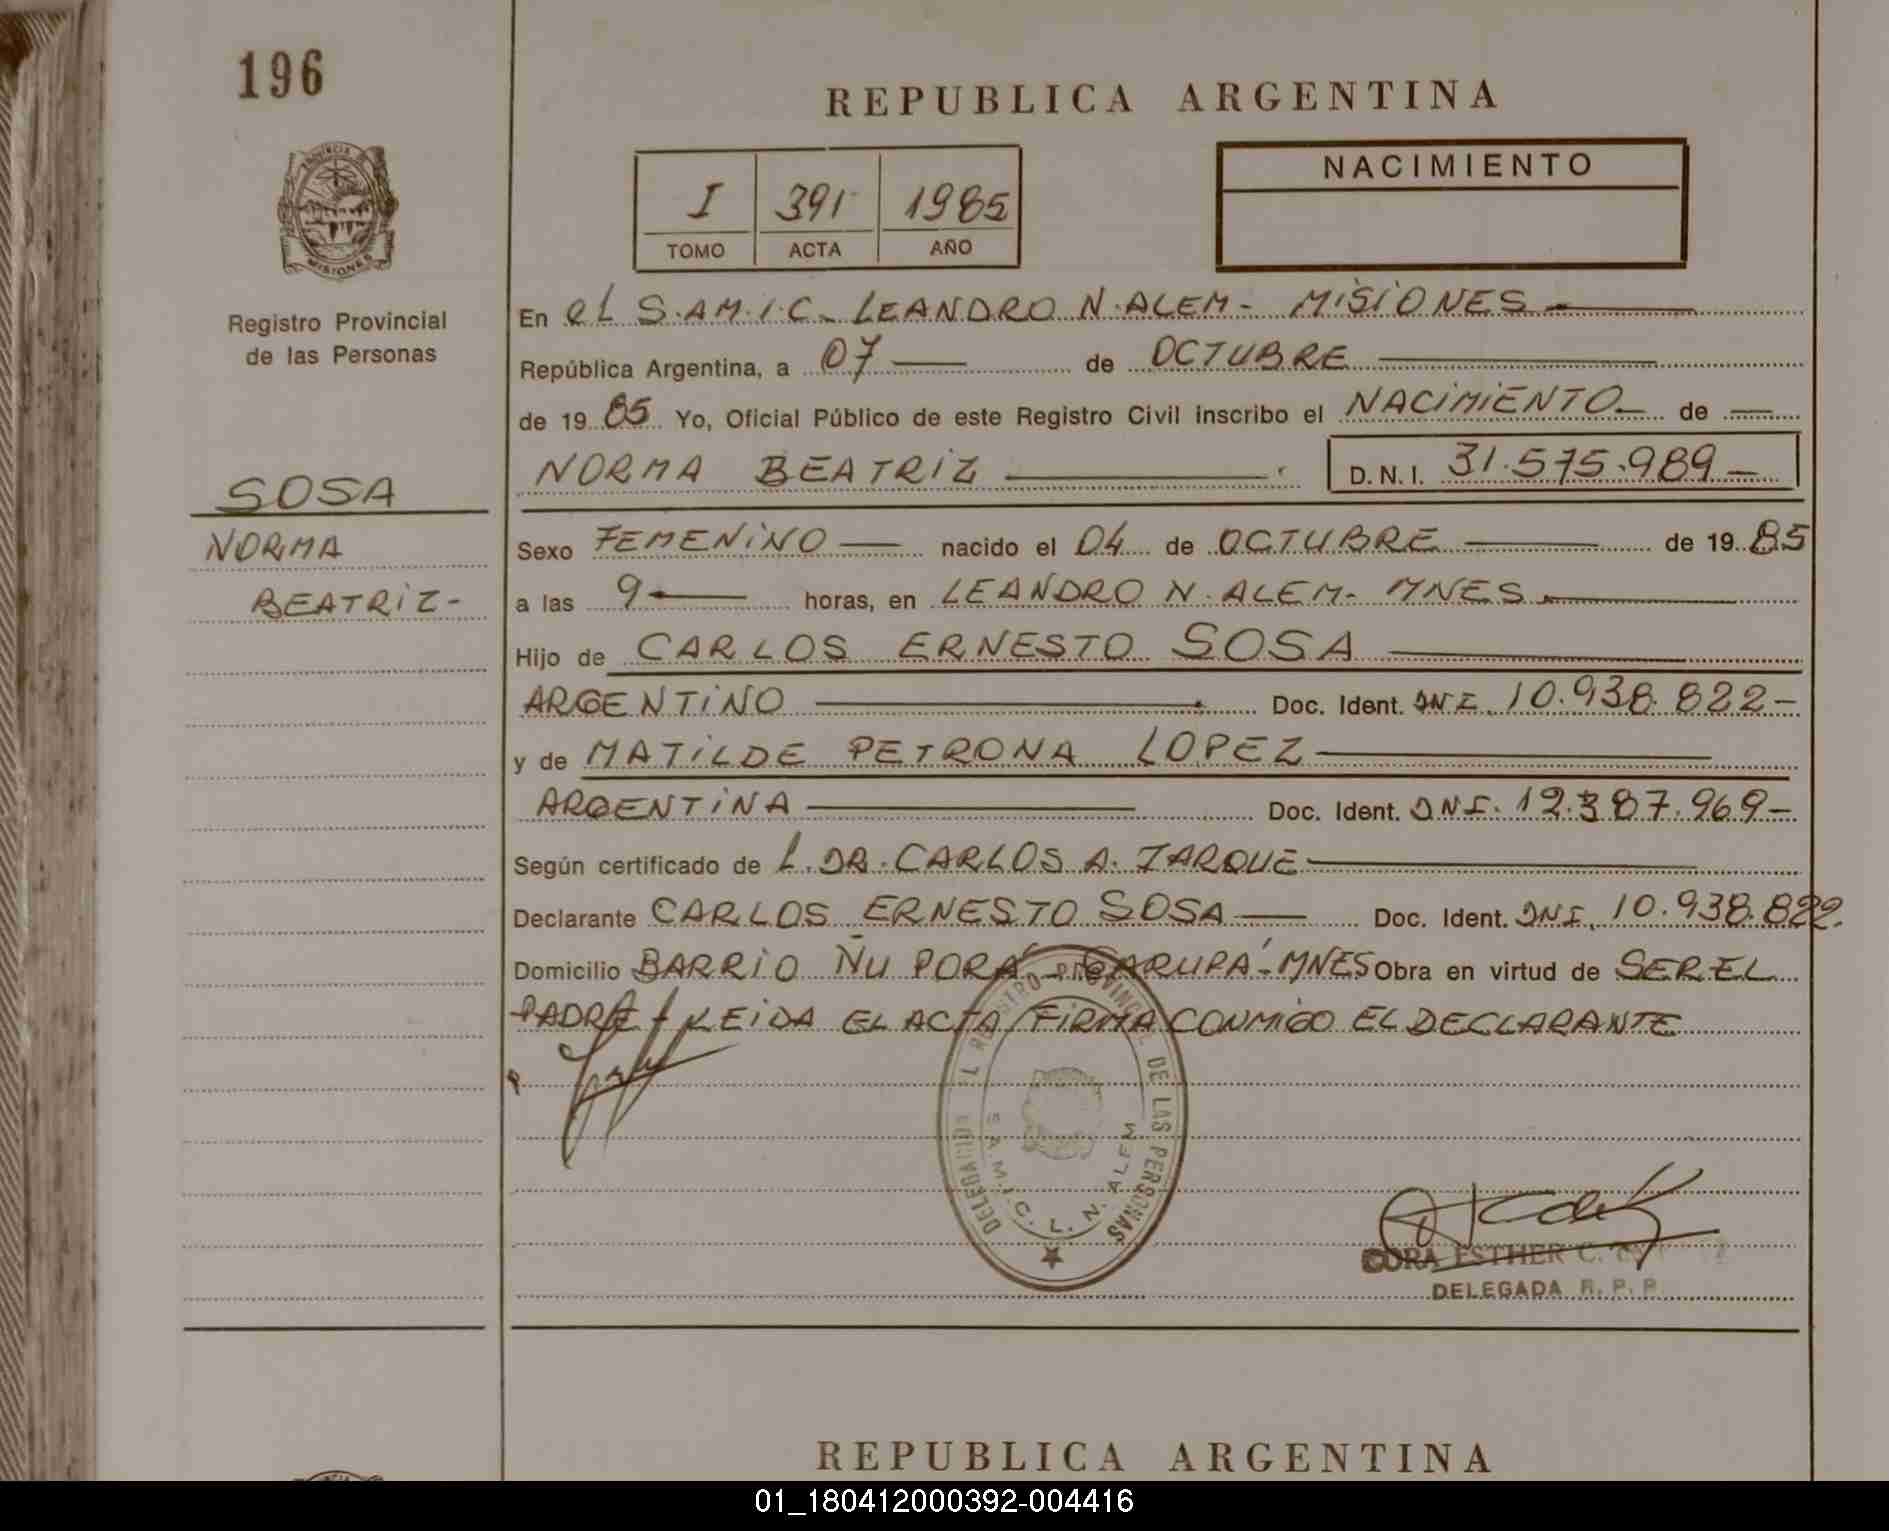 196
REPUBLICA ARGENTINA
NACIMIENTO
I 391 1985
TOMO ACTA AÑO
PROVINCIA DE
MISIONES
Registro Provincial
de las Personas
En el S.A.M.I.C. LEANDRO N. ALEM - MISIONES -
República Argentina, a 07 — de OCTUBRE
de 19 85 Yo, Oficial Público de este Registro Civil inscribo el NACIMIENTO — de —
NORMA BEATRIZ — D.N.I. 31.575.989 —
SOSA
NORMA
BEATRIZ -
Sexo FEMENINO — nacido el 04 de OCTUBRE — de 19 85
a las 9 — horas, en LEANDRO N. ALEM - MNES
Hijo de CARLOS ERNESTO SOSA
ARGENTINO — Doc. Ident. DNI. 10.938.822 -
y de MATILDE PETRONA LOPEZ
ARGENTINA — Doc. Ident. DNI. 12.387.969 -
Según certificado de L. DR. CARLOS A. ZARQUE
Declarante CARLOS ERNESTO SOSA — Doc. Ident. DNI. 10.938.822.
Domicilio BARRIO ÑU PORÁ - GARUPÁ - MNES Obra en virtud de SER EL
PADRE - LEIDA EL ACTA FIRMA CONMIGO EL DECLARANTE
DELEGACION DEL REGISTRO PROVINCIAL DE LAS PERSONAS
S.A.M.I.C. L. N. ALEM
DORA ESTHER C.
DELEGADA R. P. P.
REPUBLICA ARGENTINA
01_180412000392-004416